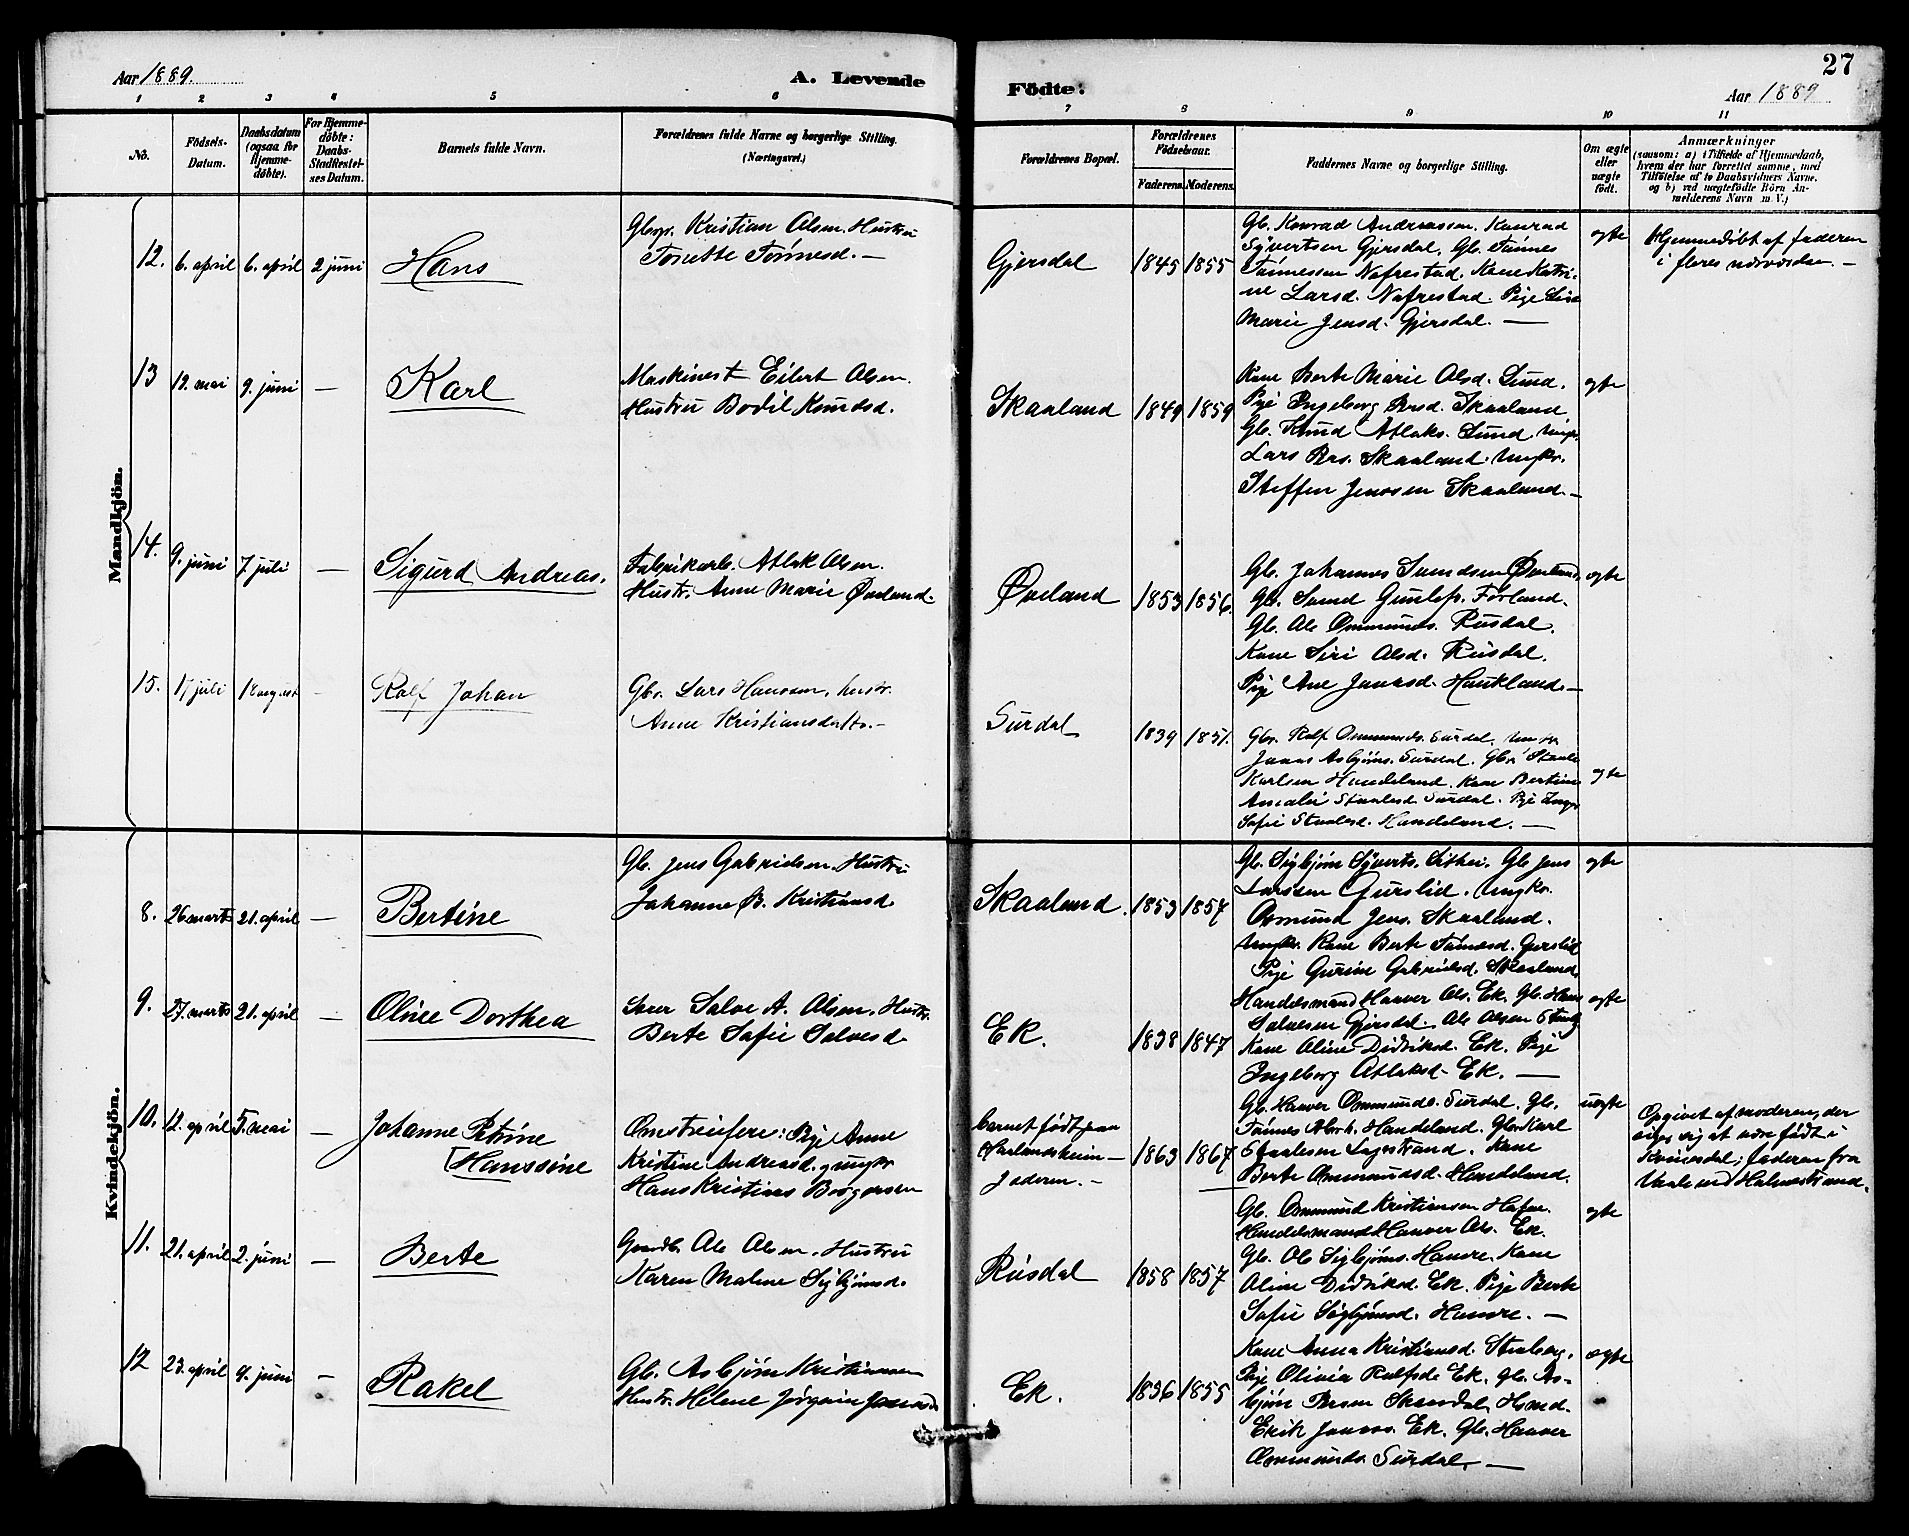 Aar 1889.
A. Levende
Födte:
27
Aar 1889
1 2 3 4 5 6 7 8 9 10 11
No.
Födsels-
Datum.
Daabsdatum
(ogsaa for
Hjemme-
döbte).
For Hjemme-
döbte:
Daabs-
Stadfæstel-
ses Datum.
Barnets fulde Navn.
Forældrenes fulde Navne og borgerlige Stilling.
(Næringsvei.)
Forældrenes Bopæl.
Forældrenes
Födselsaar.
Faderens.
Moderens.
Faddernes Navne og borgerlige Stilling.
Om ægte
eller
uægte
födt.
Anmærkninger
(saasom: a) i Tilfælde af Hjemmedaab,
hvem der har forrettet samme, med
Tilföielse af to Daabsvidners Navne,
og b) ved uægtefödte Börn An-
melderens Navn m. V.)
Mandkjön.
12. 6. april 6. april 2 juni Hans
Kristian Olsen. Hustru
Tonette Tönnesd. —
Gjersdal 1845 1855
Gb. Konrad Andreassen. Konrad
Syvertsen Gjersdal, Gb. Tönnes
Tönnessen Nafrestad. Kone Katri-
ne Larsd. Nafrestad. Pige
Marie Jensd. Gjersdal. —
ægte
Hjemmedöbt af faderen
i fleres nærværelse. —
13 19. mai 9. juni — Karl
Maskinest Eilert Olsen.
Hustru Bodil Knudsd.
Skaaland 1849 1859
Kone Berte Marie Olsd. Lund.
Pige Ingeborg Skaaland
Gb. Knud Atlaks. Lund,
Lars Skaaland. Ungkr.
Steffen Jenssen Skaaland. —
ægte
14. 9. juni 7. juli — Sigurd Andreas.
Fabrikarb. Atlak Olsen.
Hustr. Anne Marie Øveland.
Øveland 1853 1856.
Gb. Johannes
Gb. Förland.
Gb. Ole Ommunds. Rusdal.
Kone Siri Olsd. Rusdal.
Pige Ane Jonasd. Haukland. —
ægte
15. 17 juli 18 august - Rolf Johan
Gbr. Lars Hanssen, hustr.
Anne Kristiansdatter. —
Surdal 1839 1851.
Gbr. Rolf Ommunds. Surdal,
Jonas Asbjörns. Surdal. Gbr.
Karlsen Handeland. Kone Bertine
Amalie Staalesd. Surdal. Pige
Sofie Staalesd. Handeland. —
ægte
Kvindekjön.
8. 26 marts 21. april — Bertine
Gb. Jens Gabrielsen. Hustru
Johanne B. Kristiansd.
Skaaland. 1853 1857
Gb. Sigbjörn Syverts. Gb. Jens
Larssen Gurslid. Ungkr.
Osmund Jens. Skaaland.
Ungkr. Kone Berte Tönnesd. Gurslid
Pige Gurine Gabrielsd. Skaaland.
ægte
9. 27. marts 21. april — Oline Dorthea
Salve A. Olsen. Hustr.
Berte Sofie Salvesd.
Ek. 1838 1847
Handelsmand Haaver Ols. Ek. Gb. Hans
Salvesen Gjersdal. Ole Olsen
Kone Oline Didriksd. Ek. Pige
Ingeborg Atlaksd. Ek. —
ægte
10. 12. april 5. mai — Johanne Petrine
Hanssine
Omstreifere: Pige Anne
Kristine Andreasd. og ungkr.
Hans Kristians Börgersen
barnet födt paa
Jæderen. —
1863 1867
Gb. Haaver Ommunds. Surdal. Gb.
Tönnes Handeland. Gbr. Karl
Staalesen Lagestrand. Kone
Berte Ommundsd. Handeland.
uægte
Opgivet af moderen, der
siger sig at være födt i
Kvinesdal; faderen fra
11. 21. april 2. juni — Berte
Ole Olsen. Hustru
Karen Malene Sigbjörnsd.
Rusdal 1858 1857
Gb. Ommund Kristiansen
Handelsmand Haaver Ols. Ek.
Gb. Ole Sigbjörns. Hamre. Kone
Oline Didriksd. Ek. Pige Berte
Sofie Sigbjörnsd. Hamre. —
ægte
12 23. april 9. juni — Rakel
Gb. Asbjörn Kristiansen
Hustr. Helene Jörgine
Ek. 1836 1855
Kone Anna Kristiansd.
Pige Olivia Rolfsd. Ek. Gb. As-
björn
Erik Ek. Gb. Haaver
Ommunds. Surdal. —
ægte